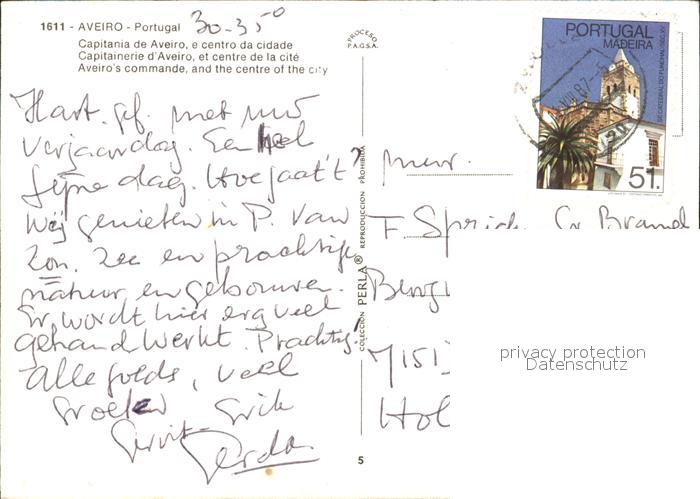 1611 - AVEIRO - Portugal
30-35°
Capitania de Aveiro, e centro da cidade
Capitainerie d'Aveiro, et centre de la cité
Aveiro's commande, and the centre of the city
Hart. gf. met uw
verjaardag. Een heel
fijne dag. Hoe gaat't?
Wij genieten in P. van
zon, zee en prachtige
natuur en gebouwen.
Er wordt hier erg veel
gehandwerkt. Prachtig!
Alle goeds, veel
groeten
Gerda
PROCESO
P.A.G.S.A.
COLECCION PERLA® REPRODUCCION PROHIBIDA
5
PORTUGAL
MADEIRA
SÉ CATEDRAL DO FUNCHAL SÉC. XV
51.
mevr.
F. Sprick
Hol
privacy protection
Datenschutz